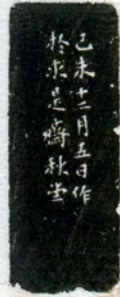 己未十二月五日作
於求是齋秋堂